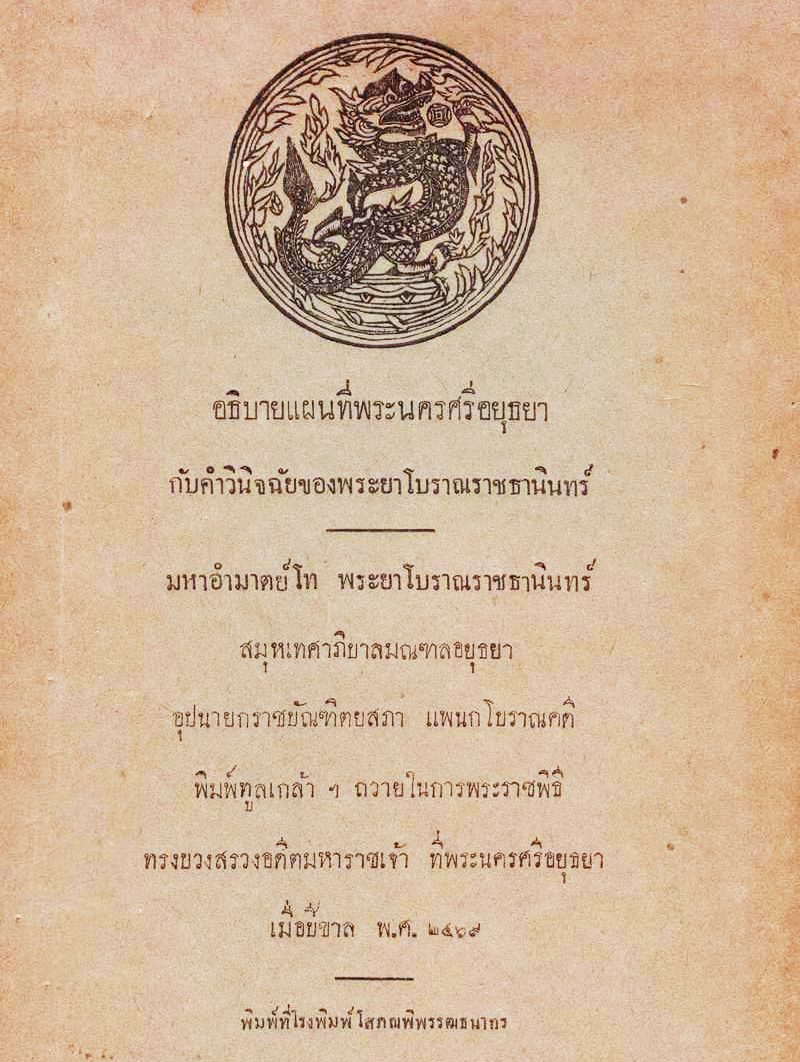 อธิบายแผนที่พระนครศรีอยุธยา
กับคำวินิจฉัยของพระยาโบราณราชธานินทร์
มหาอำมาตย์โท พระยาโบราณราชธานินทร์
สมุหเทศาภิบาลมณฑลอยุธยา
อุปนายกราชบัณฑิตยสภา แพนกโบราณคดี
พิมพ์ทูลเกล้า ฯ ถวายในการพระราชพิธี
ทรงบวงสรวงอดีตมหาราชเจ้า ที่พระนครศรีอยุธยา
เมื่อปีขาล พ.ศ. ๒๔๖๙
พิมพ์ที่โรงพิมพ์โสภณพิพรรฒธนากร